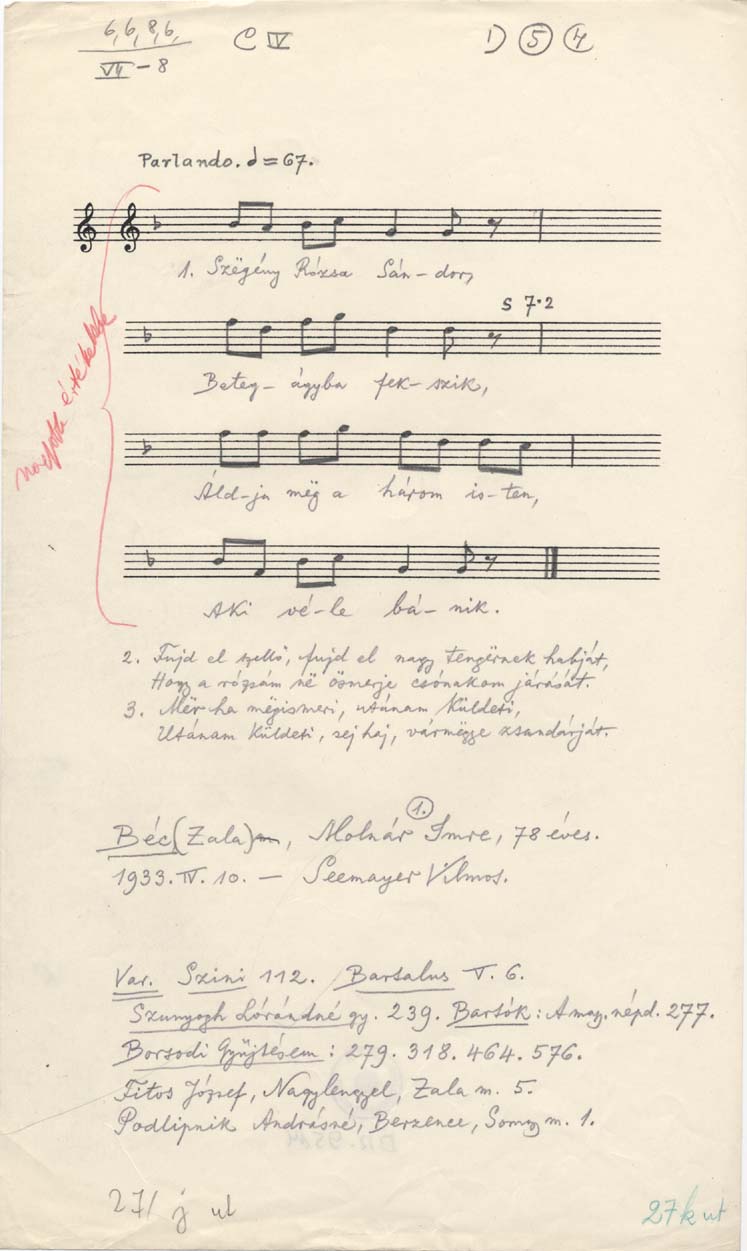 6, 6, 8, 6,
VII - 8
C IV
1) 5 4
Parlando. = 67.
1. Szëgény Rózsa Sán-dor,
S 7·2
Beteg-ágyba fek-szik,
Áld-ja mëg a három is-ten,
Aki vé-le bá-nik.
2. Fujd el szellő, fujd el nagy tengërnek habját,
Hogy a rózsám në ösmerje csónakom járását.
3. Mër ha mëgismeri, utánam küldeti,
Utánam küldeti, sej haj, vármëgye zsandárját.
1.
Béc (Zala), Molnár Imre, 78 éves.
1933. IV. 10. — Seemayer Vilmos.
Var. Szini 112. Bartalus V. 6.
Szunyogh Lórándné gy. 239. Bartók: A mag. népd. 277.
Borsodi Gyüjtésem: 279. 318. 464. 576.
Fitos József, Nagylengyel, Zala m. 5.
Podlipnik Andrásné, Berzence, Somogy m. 1.
27/ j ut
27 k ut